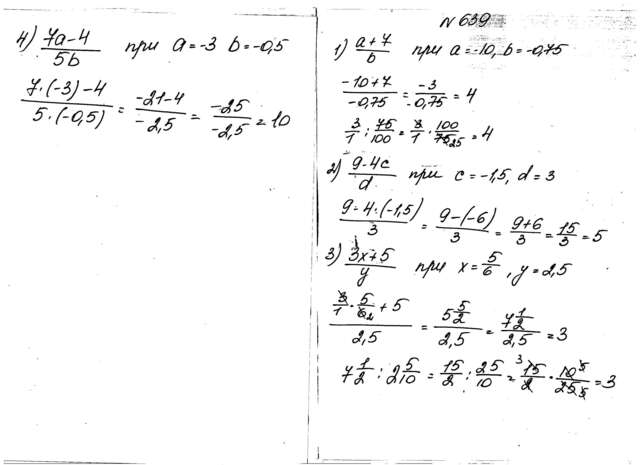 4) (7a-4)/5b при a=-3 b=-0,5
(7·(-3)-4)/(5·(-0,5)) = (-21-4)/(-2,5) = (-25)/(-2,5) = 10
N 639
1) (a+7)/b при a=-10, b=-0,75
(-10+7)/(-0,75) = (-3)/(-0,75) = 4
3/1 : 75/100 = 3/1 · 100/75 25 = 4
2) (9-4c)/d при c=-1,5, d=3
(9-4·(-1,5))/3 = (9-(-6))/3 = (9+6)/3 = 15/3 = 5
3) (3x+5)/y при x=5/6, y=2,5
(3/1 · 5/6 2 + 5)/2,5 = (5 5/2)/2,5 = (7 1/2)/2,5 = 3
7 1/2 : 2 5/10 = 15/2 : 25/10 = 3 15/2 · 10 5/25 5 = 3